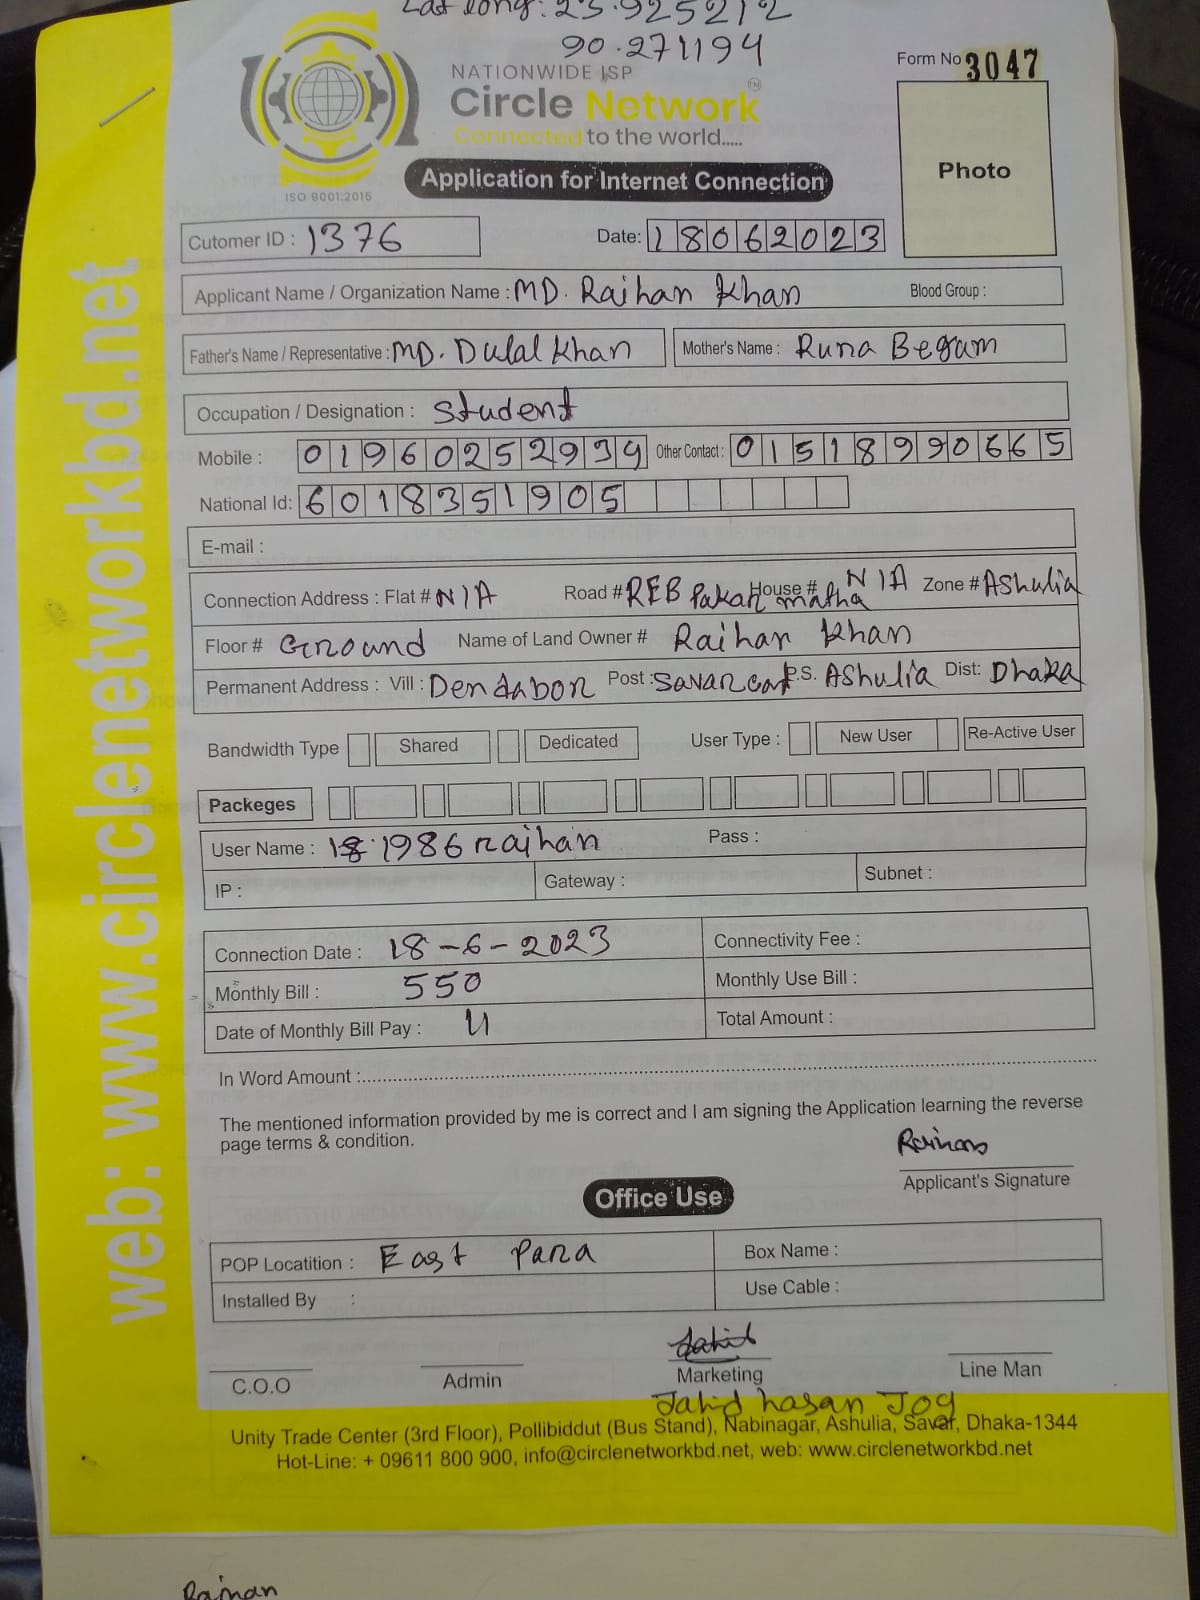 Lat long: 23.925212
90.271194
NATIONWIDE ISP
Form No 3047
Circle Network TM
Connected to the world.....
Photo
Application for Internet Connection
ISO 9001:2015
Cutomer ID : 1376
Date: 18062023
Applicant Name / Organization Name : MD. Raihan Khan Blood Group :
Father's Name / Representative : MD. Dulal Khan Mother's Name : Runa Begum
Occupation / Designation : Student
Mobile : 01960252934 Other Contact : 01518990665
National Id: 6018351905
E-mail :
Connection Address : Flat # N/A Road # REB Pakar matha House # N/A Zone # Ashulia
Floor # Ground Name of Land Owner # Raihan Khan
Permanent Address : Vill : Dendabor Post : Savarcat P.S. Ashulia Dist: Dhaka
Bandwidth Type Shared Dedicated User Type : New User Re-Active User
Packeges
User Name : 18 1986raihan Pass :
IP : Gateway : Subnet :
Connection Date : 18-6-2023 Connectivity Fee :
Monthly Bill : 550 Monthly Use Bill :
Date of Monthly Bill Pay : Total Amount :
In Word Amount :
The mentioned information provided by me is correct and I am signing the Application learning the reverse
page terms & condition.
Raihan
Applicant's Signature
Office Use
POP Locatition : East Para Box Name :
Installed By : Use Cable :
Jahid
C.O.O Admin Marketing Line Man
Jahid hasan Joy
Unity Trade Center (3rd Floor), Pollibiddut (Bus Stand), Nabinagar, Ashulia, Savar, Dhaka-1344
Hot-Line: + 09611 800 900, info@circlenetworkbd.net, web: www.circlenetworkbd.net
web: www.circlenetworkbd.net
Raihan